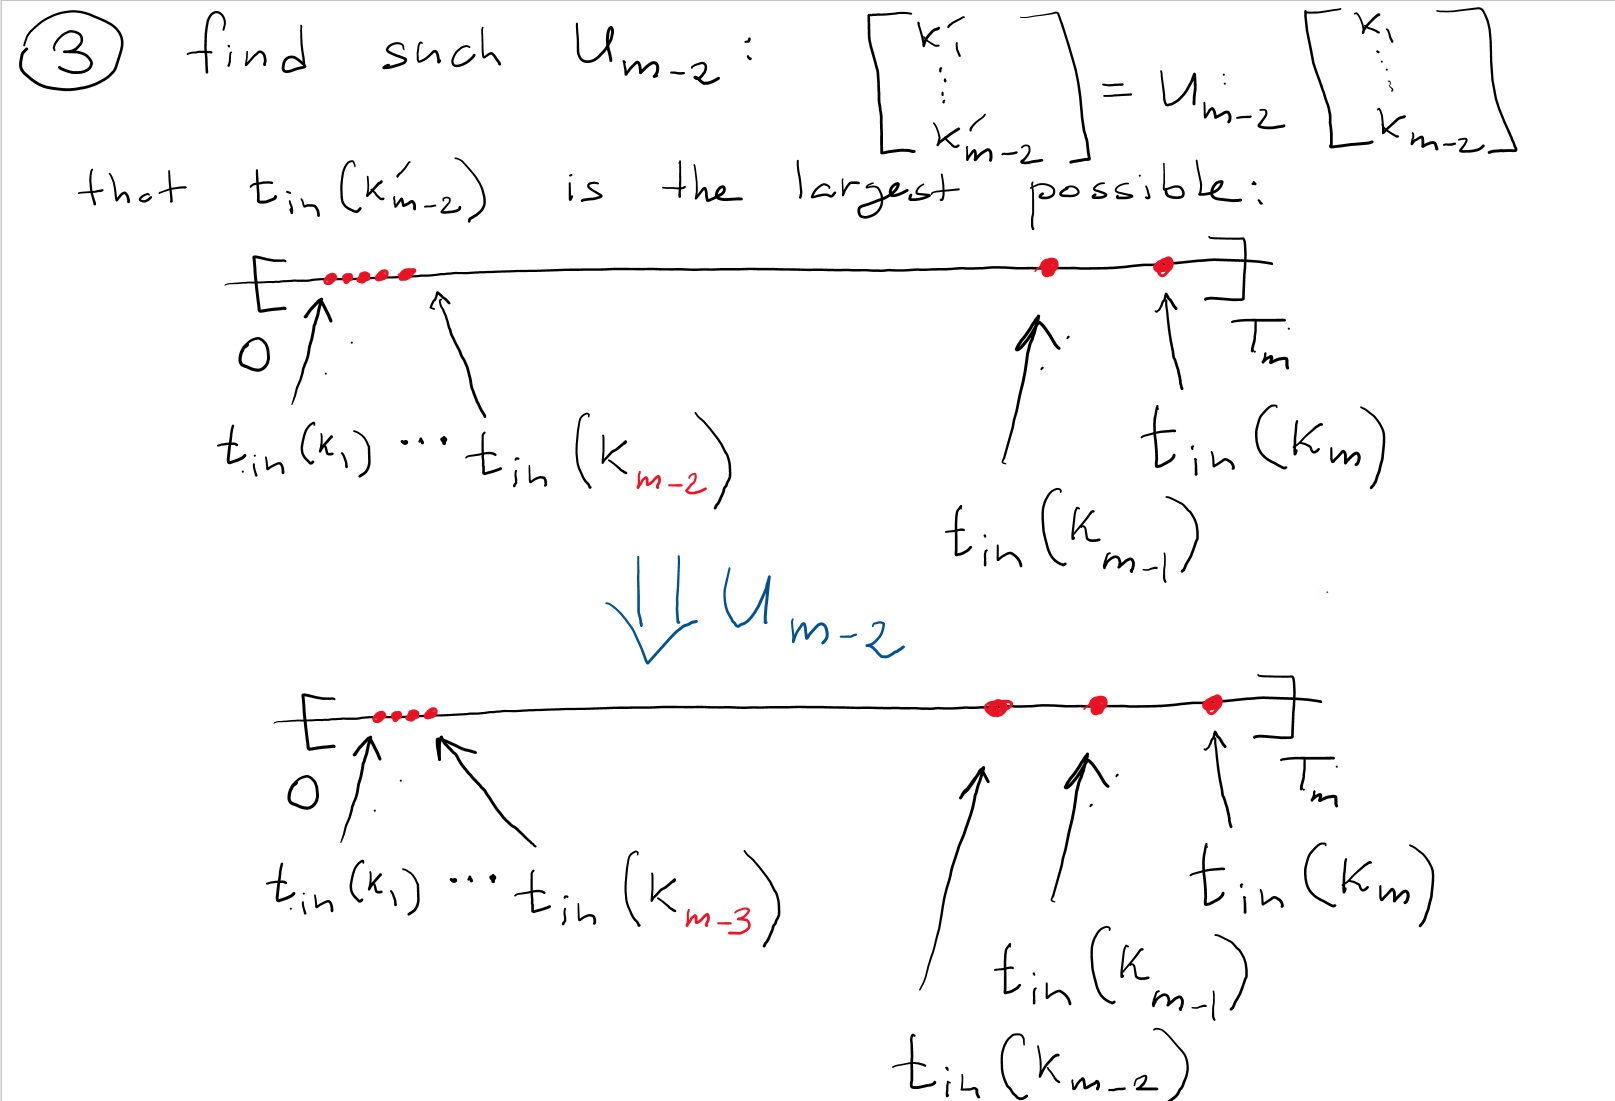 ③ find such U_{m-2} : [K'_1 ⋮ K'_{m-2}] = U_{m-2} [K_1 ⋮ K_{m-2}]
that t_{in}(K'_{m-2}) is the largest possible:
[ ]
0 T_m
t_{in}(K_1) ··· t_{in}(K_{m-2}) t_{in}(K_m)
t_{in}(K_{m-1})
⇓ U_{m-2}
[ ]
0 T_m
t_{in}(K_1) ··· t_{in}(K_{m-3}) t_{in}(K_m)
t_{in}(K_{m-1})
t_{in}(K_{m-2})